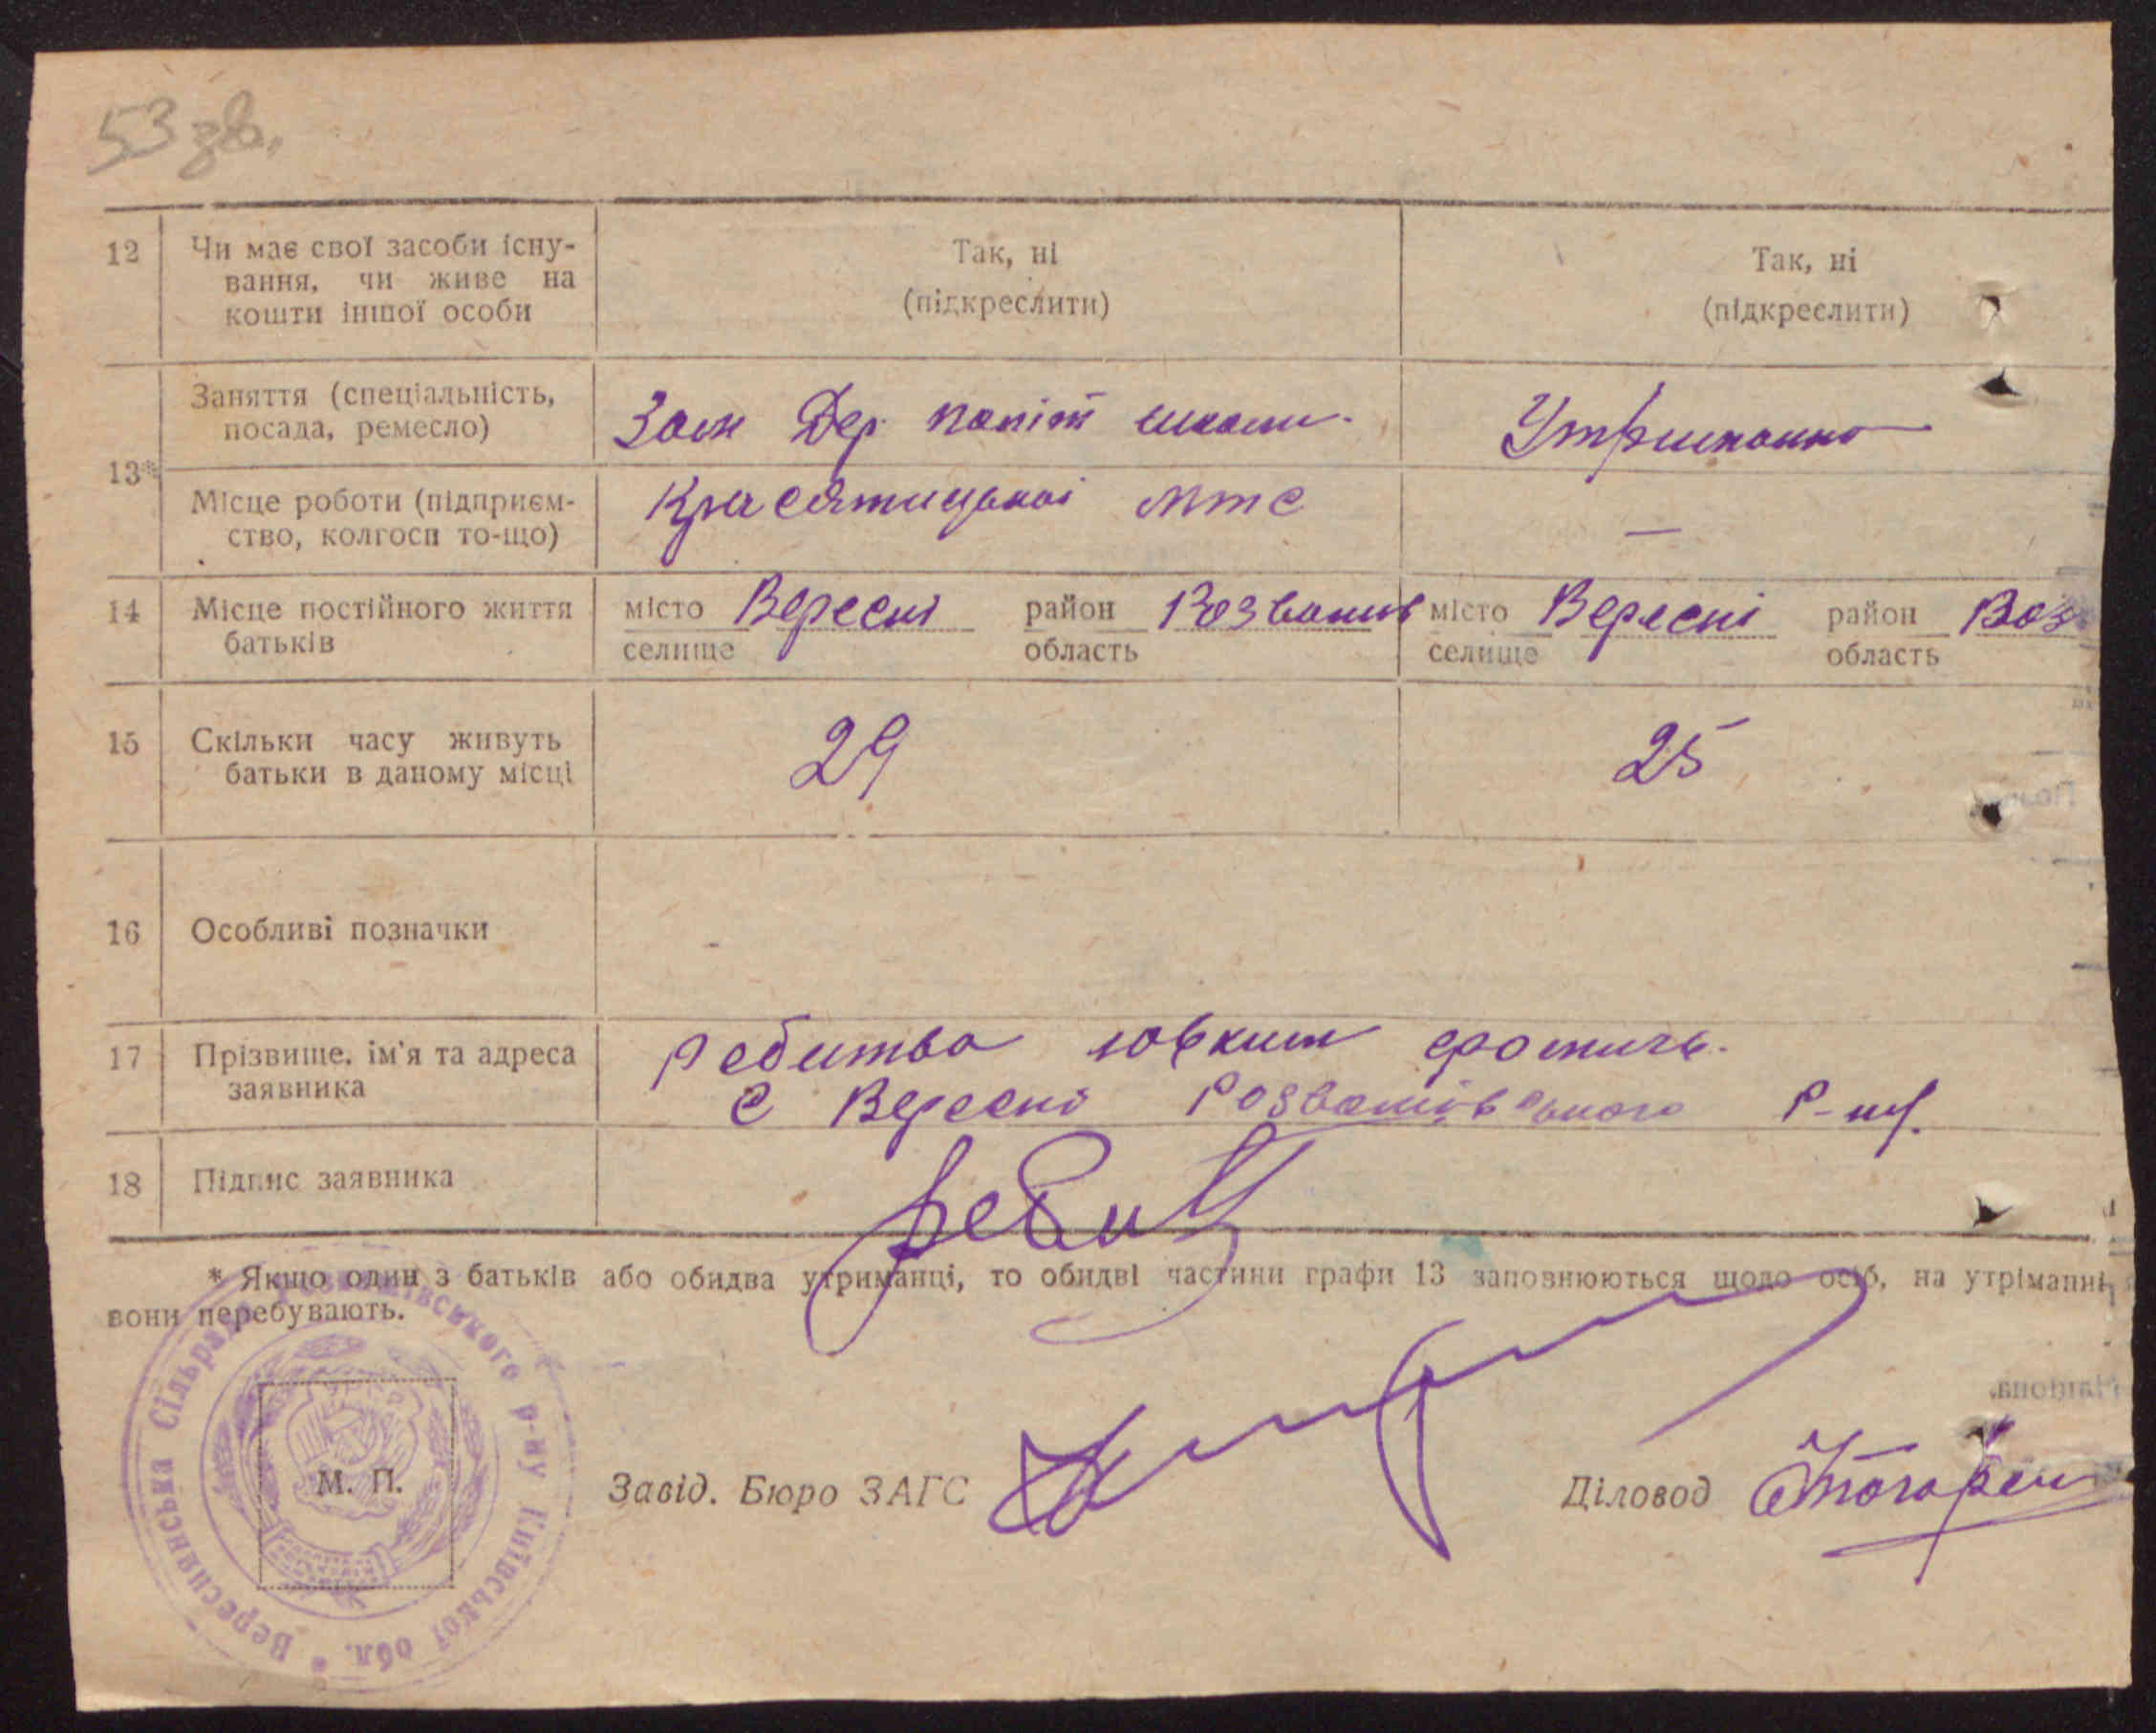 53 зв.
12 Чи має свої засоби існу-
вання, чи живе на
кошти іншої особи
Так, ні
(підкреслити)
Так, ні
(підкреслити)
13*
Заняття (спеціальність,
посада, ремесло)
Зам Дер політ школи
Утриманка
Місце роботи (підприєм-
ство, колгосп то-що)
Красятицької МТС
—
14 Місце постійного життя
батьків
місто Вересні район Розважів
селище область
місто Вересні район Роз
селище область
15 Скільки часу живуть
батьки в даному місці
29
25
16 Особливі позначки
17 Прізвище, ім'я та адреса
заявника
Ребитва
с Вересні Розважівського Р-ну.
18 Підпис заявника
Ребит
* Якщо один з батьків або обидва утриманці, то обидві частини графи 13 заповнюються щодо осіб, на утріманні
вони перебувають.
Вереснянська Сільрада Розважівського р-ну Київської обл. *
М. П.
Завід. Бюро ЗАГС
Діловод